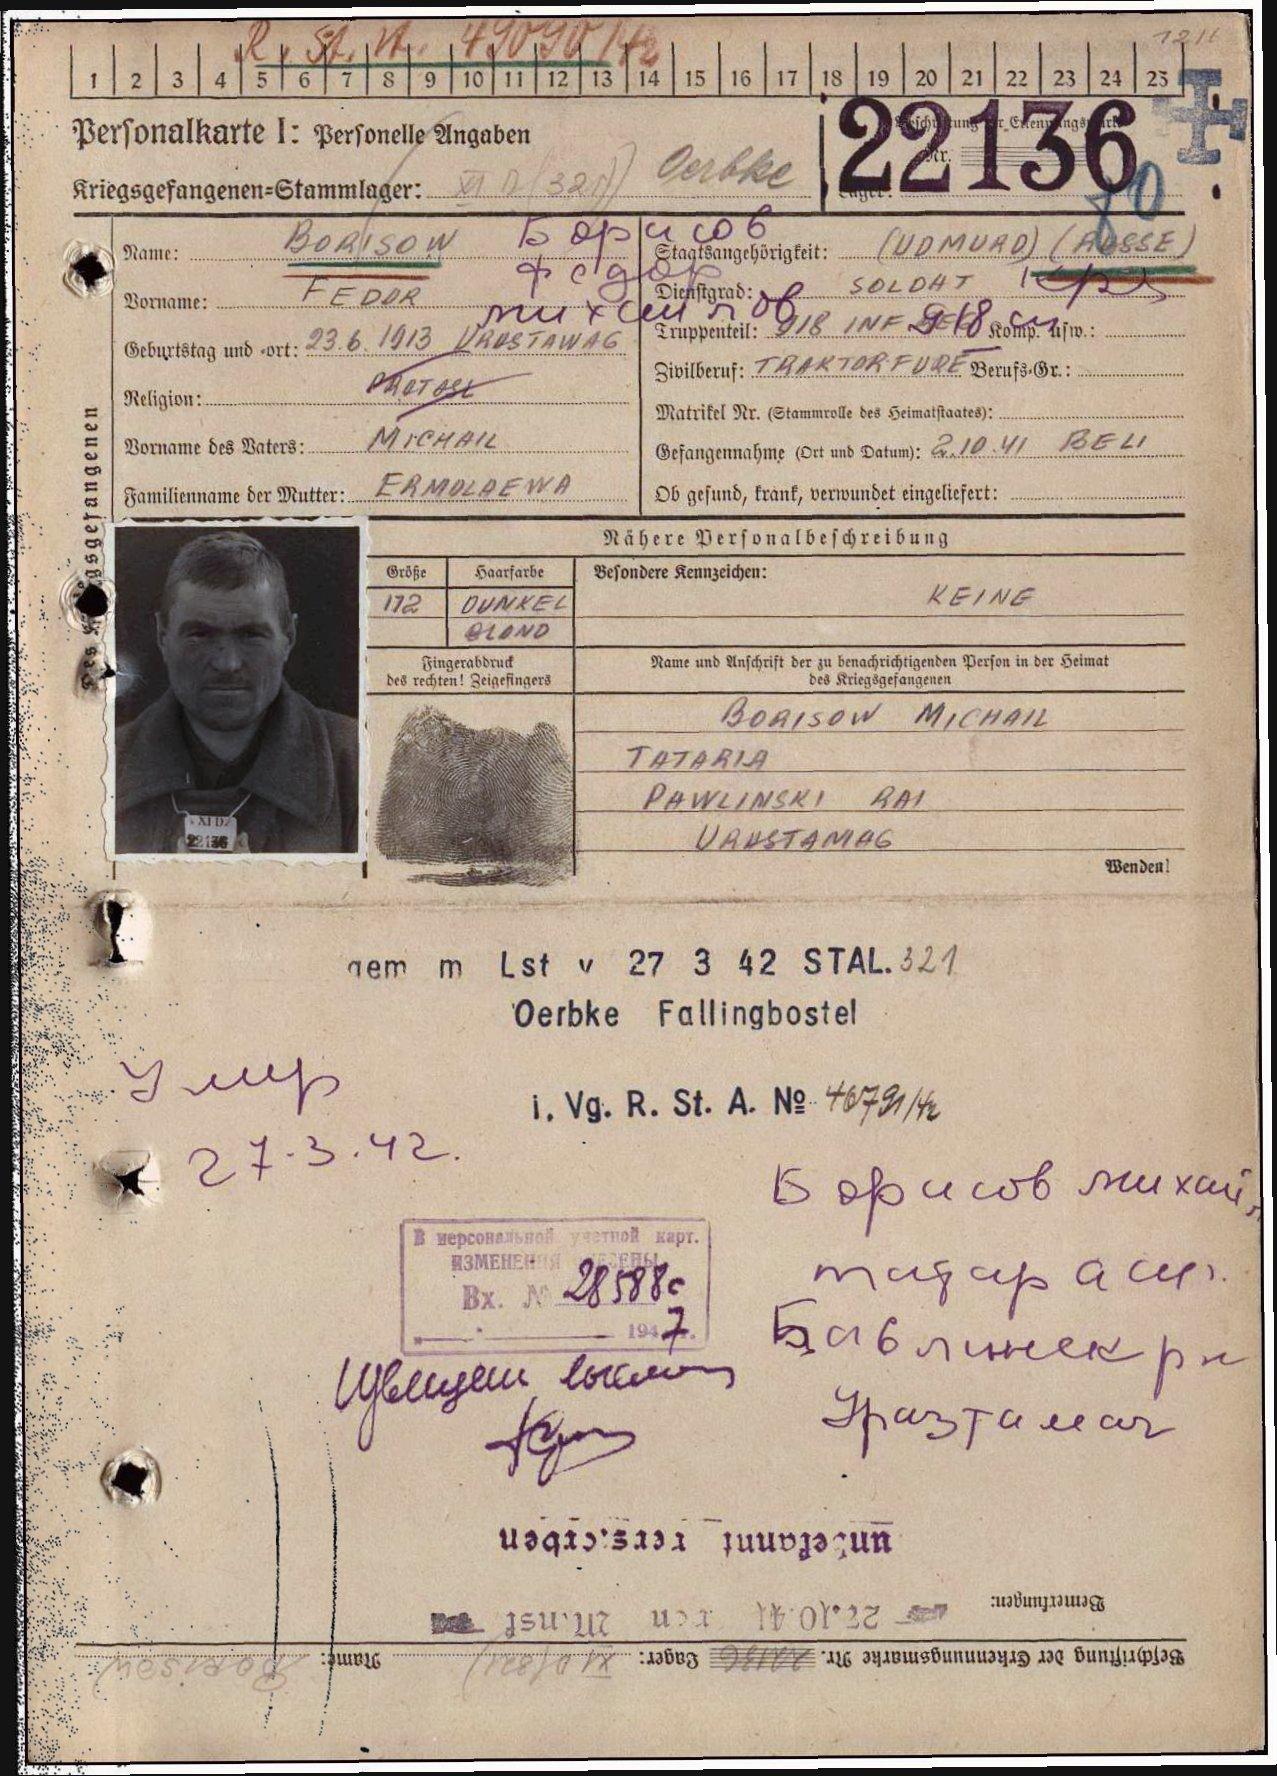 1211
R. St. A. 49090/42
1 2 3 4 5 6 7 8 9 10 11 12 13 14 15 16 17 18 19 20 21 22 23 24 25
Personalkarte I: Personelle Angaben
Beschriftung der Erkennungsmarke
Nr.
22136
Kriegsgefangenen=Stammlager: XI D (321) Oerbke
Lager:
80
Des Kriegsgefangenen
Name: BORISOW Борисов
Vorname: FEDOR Федор
Михайлов
Geburtstag und =ort: 23.6.1913 URASTAWAG
Religion: PROTOSL
Vorname des Vaters: MICHAIL
Familienname der Mutter: ERMOLAEWA
Staatsangehörigkeit: (UDMURD) (RUSSE)
Dienstgrad: SOLDAT
Truppenteil: 918 INF 918 Komp. usw.:
Zivilberuf: TRAKTORFURE Berufs=Gr.:
Matrikel Nr. (Stammrolle des Heimatstaates):
Gefangennahme (Ort und Datum): 2.10.41 BELI
Ob gesund, krank, verwundet eingeliefert:
Nähere Personalbeschreibung
Größe Haarfarbe Besondere Kennzeichen:
172 DUNKEL KEINE
BLOND
Fingerabdruck
des rechten! Zeigefingers
Name und Anschrift der zu benachrichtigenden Person in der Heimat
des Kriegsgefangenen
BORISOW MICHAIL
TATARIA
PAWLINSKI RAI
URASTAMAG
XI D
22136
Wenden!
gem m Lst v 27 3 42 STAL. 321
Oerbke Fallingbostel
Умер
i. Vg. R. St. A. №
27.3.42.
Борисов Михаил
В персональной учетной карт.
ИЗМЕНЕНИЯ ВНЕСЕНЫ
Вх. № 28588с
1947.
Бавлинск рн
Извещен
Уразтамак
unbekannt verstorben
Bemerkungen:
Beschriftung der Erkennungsmarke Nr. 22136 Lager: XI D (321) Name: Borisow